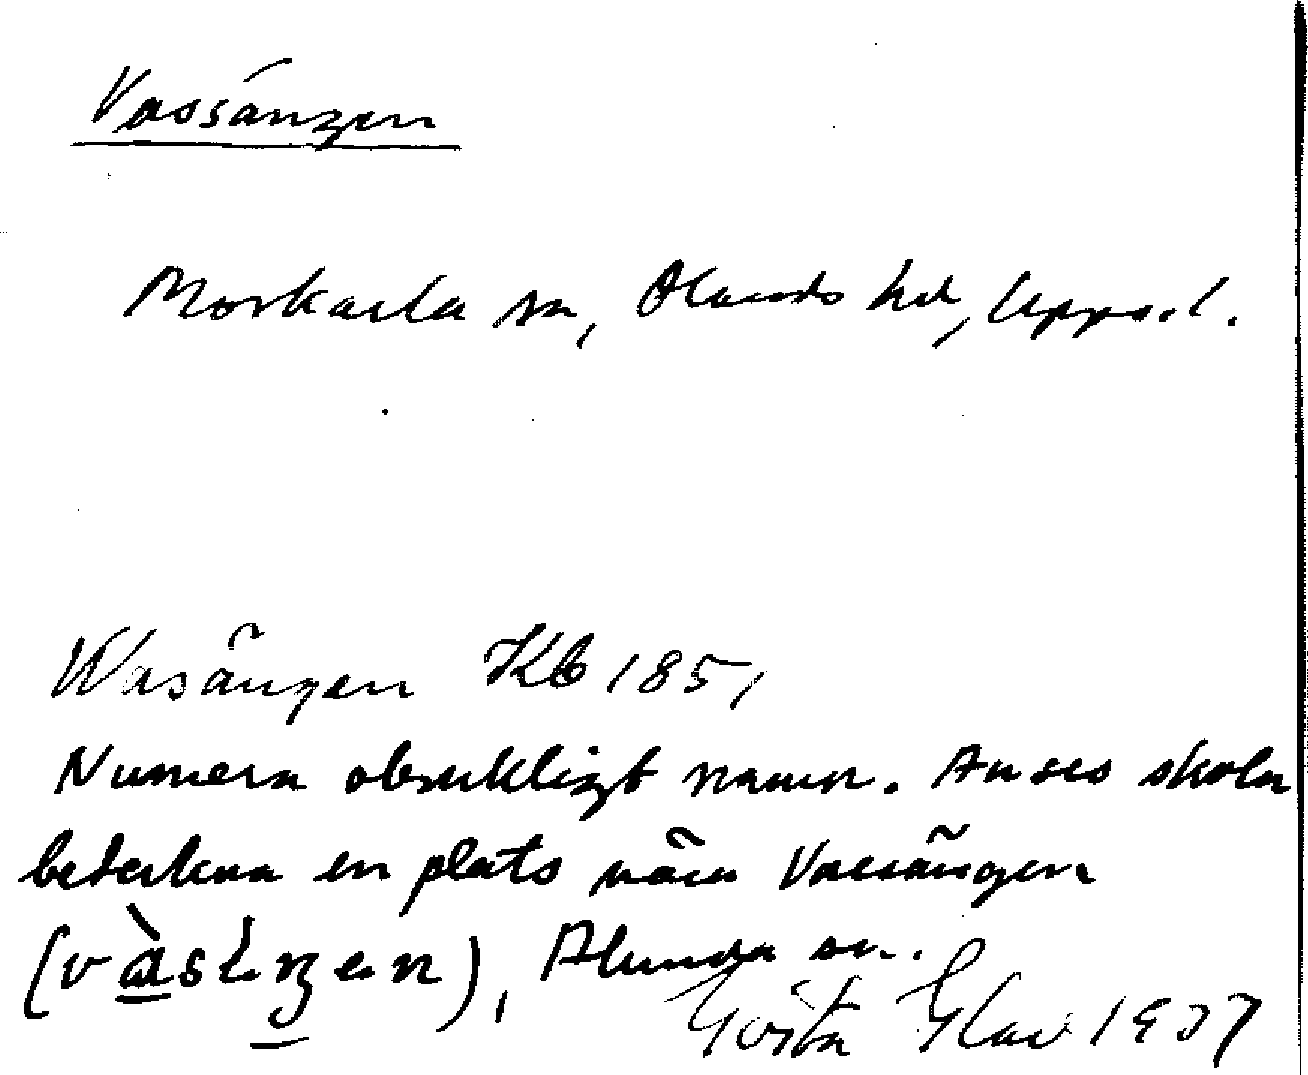 Vassängen
Morkarla sn, Olands hd, Upps.l.
Wasängen Kb 1851
Numera obrukligt namn. Anses skola
beteckna en plats nära Vassängen
Alunda sn.
Gösta 1937